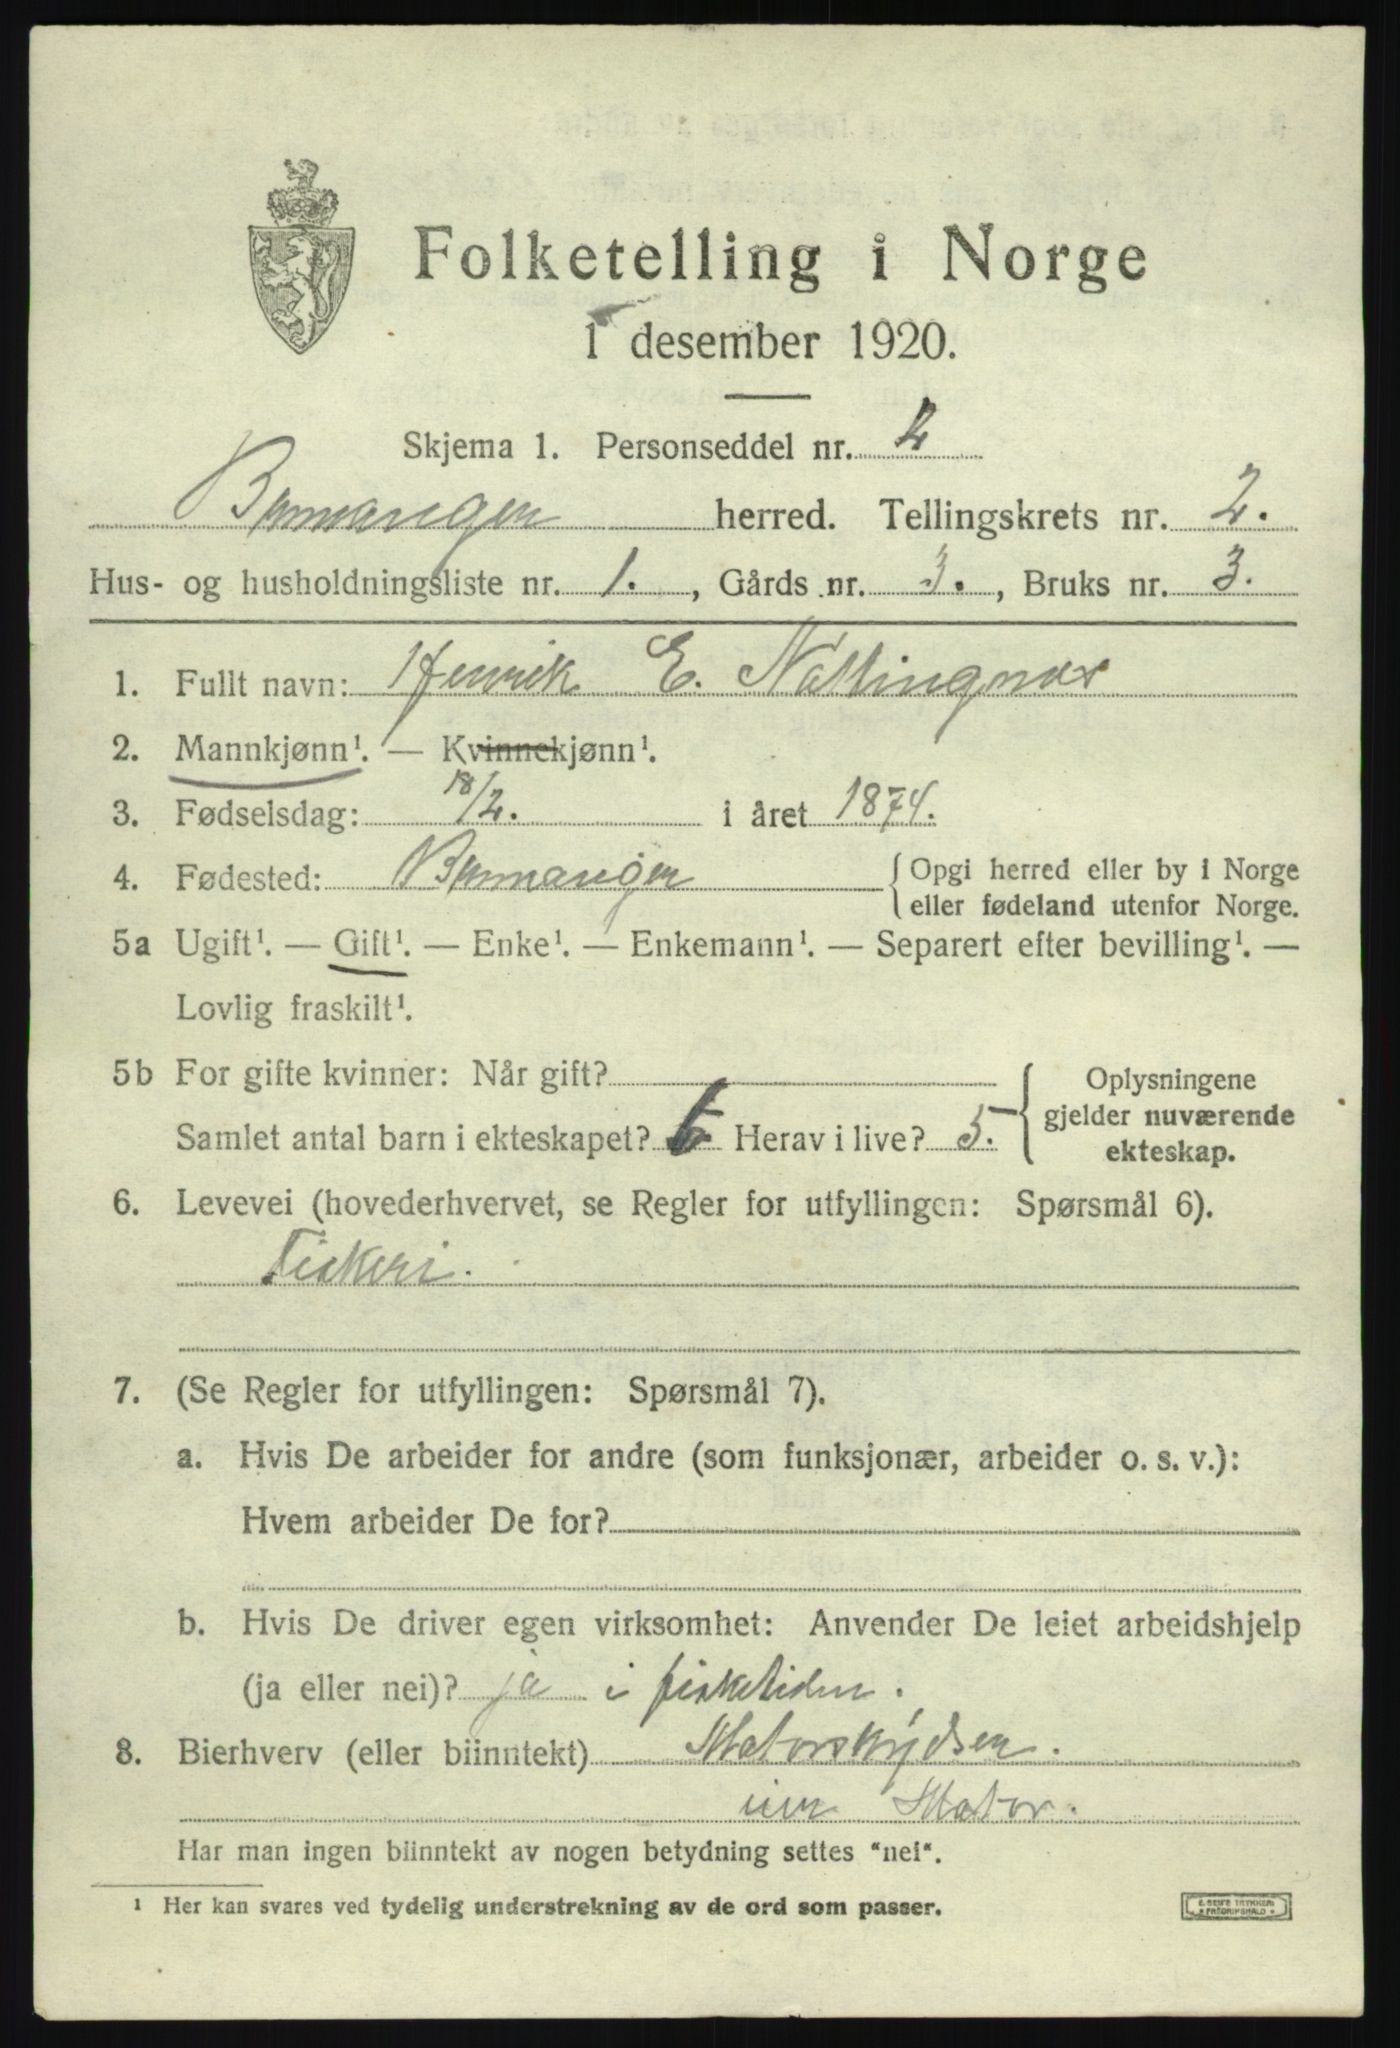 Folketelling i Norge
1 desember 1920.
Skjema 1. Personseddel nr. 2
Bremanger herred. Tellingskrets nr. 2.
Hus- og husholdningsliste nr. 1., Gårds nr. 3., Bruks nr. 3.
1. Fullt navn: Henrik E. Nøttingnes
2. Mannkjønn¹. — Kvinnekjønn¹.
3. Fødselsdag: 18/2. i året 1874.
4. Fødested: Bremanger { Opgi herred eller by i Norge
eller fødeland utenfor Norge.
5a Ugift¹. — Gift¹. — Enke¹. — Enkemann¹. — Separert efter bevilling¹. —
Lovlig fraskilt¹.
5b For gifte kvinner: Når gift?
Samlet antal barn i ekteskapet? Herav i live? 5.
Oplysningene
gjelder nuværende
ekteskap.
6. Levevei (hovederhvervet, se Regler for utfyllingen: Spørsmål 6).
Fiskeri.
7. (Se Regler for utfyllingen: Spørsmål 7).
a. Hvis De arbeider for andre (som funksjonær, arbeider o. s. v.):
Hvem arbeider De for?
b. Hvis De driver egen virksomhet: Anvender De leiet arbeidshjelp
(ja eller nei)? ja i fisketiden.
8. Bierhverv (eller biinntekt) Motorskydsen.
Motor.
Har man ingen biinntekt av nogen betydning settes "nei".
¹ Her kan svares ved tydelig understrekning av de ord som passer.